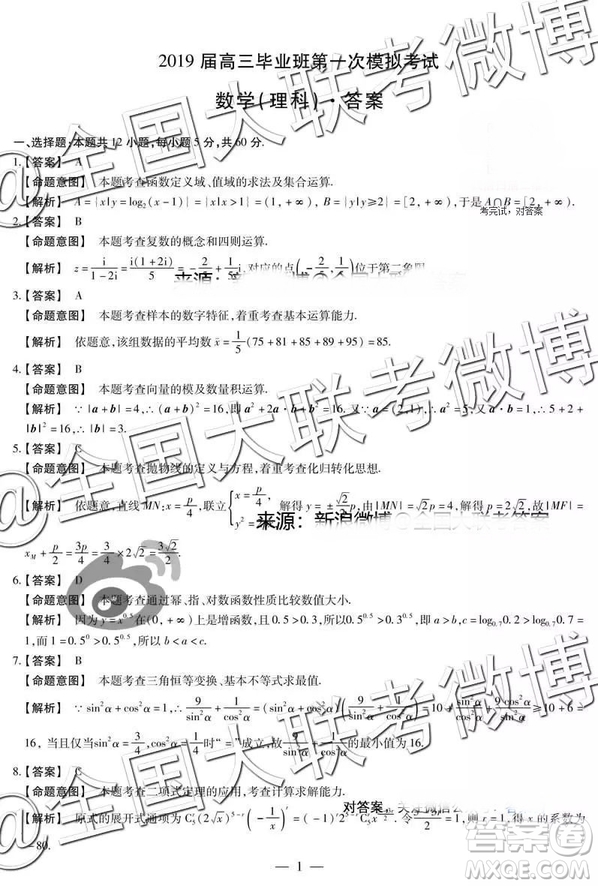 2019 届高三毕业班第一次模拟考试
数学(理科)·答案
一、选择题:本题共 12 小题,每小题 5 分,共 60 分.
1.【答案】 A
【命题意图】 本题考查函数定义域、值域的求法及集合运算.
【解析】 A={x|y=log₂(x-1)}={x|x>1}=(1,+∞), B={y|y≥2}=[2,+∞),于是A∩B=[2,+∞).
考完试,对答案
2.【答案】 B
【命题意图】 本题考查复数的概念和四则运算.
【解析】 z=i/(1-2i)=i(1+2i)/5=-2/5+1/5 i,对应的点(-2/5,1/5)位于第二象限
来源:新
3.【答案】 A
【命题意图】 本题考查样本的数字特征,着重考查基本运算能力.
【解析】 依题意,该组数据的平均数 x̄=1/5(75+81+85+89+95)=85.
4.【答案】 B
【命题意图】 本题考查向量的模及数量积运算.
【解析】 ∵|a+b|=4,∴(a+b)²=16,即 a²+2a·b+b²=16.又 a=(2,1),∴a²=5,又 a·b=1,∴5+2+
|b|²=16,∴|b|=3.
5.【答案】 C
【命题意图】 本题考查抛物线的定义与方程,着重考查化归转化思想.
【解析】 依题意,直线 MN:x=p/4,联立{x=p/4, y²= 解得 y=±√2p/2,由|MN|=√2p=4,解得 p=2√2,故|MF|=
来源:新浪微博@全国大联考答案
x_M+p/2=3p/4=3/4×2√2=3√2/2.
6.【答案】 D
【命题意图】 本题考查通过幂、指、对数函数性质比较数值大小.
【解析】 因为 y= 在(0,+∞)上是增函数,且0.5>0.3,所以0.5^0.5>0.3^0.5,即 a>b,c=log₀.₇0.5>log₀.₇0.7=
1,而 1=0.5⁰>0.5^0.5,所以 b<a<c.
7.【答案】 B
【命题意图】 本题考查三角恒等变换、基本不等式求最值.
【解析】 ∵sin²α+cos²α=1,∴9/sin²α+1/cos²α=(sin²α+cos²α)(9/sin²α+1/cos²α)=10+ ≥10+6=
16,当且仅当sin²α=3/4,cos²α=1/4时“=”成立,故9/sin²α+1/cos²α的最小值为 16.
8.【答案】 A
【命题意图】 本题考查二项式定理的应用,考查计算求解能力.
对答案,
【解析】 原式的展开通项为 令 =1,则 r=1,得 x 的系数为
-80.
— 1 —
@全国大联考微博
@全国大联考微博
@全国大联考微博
答案圈